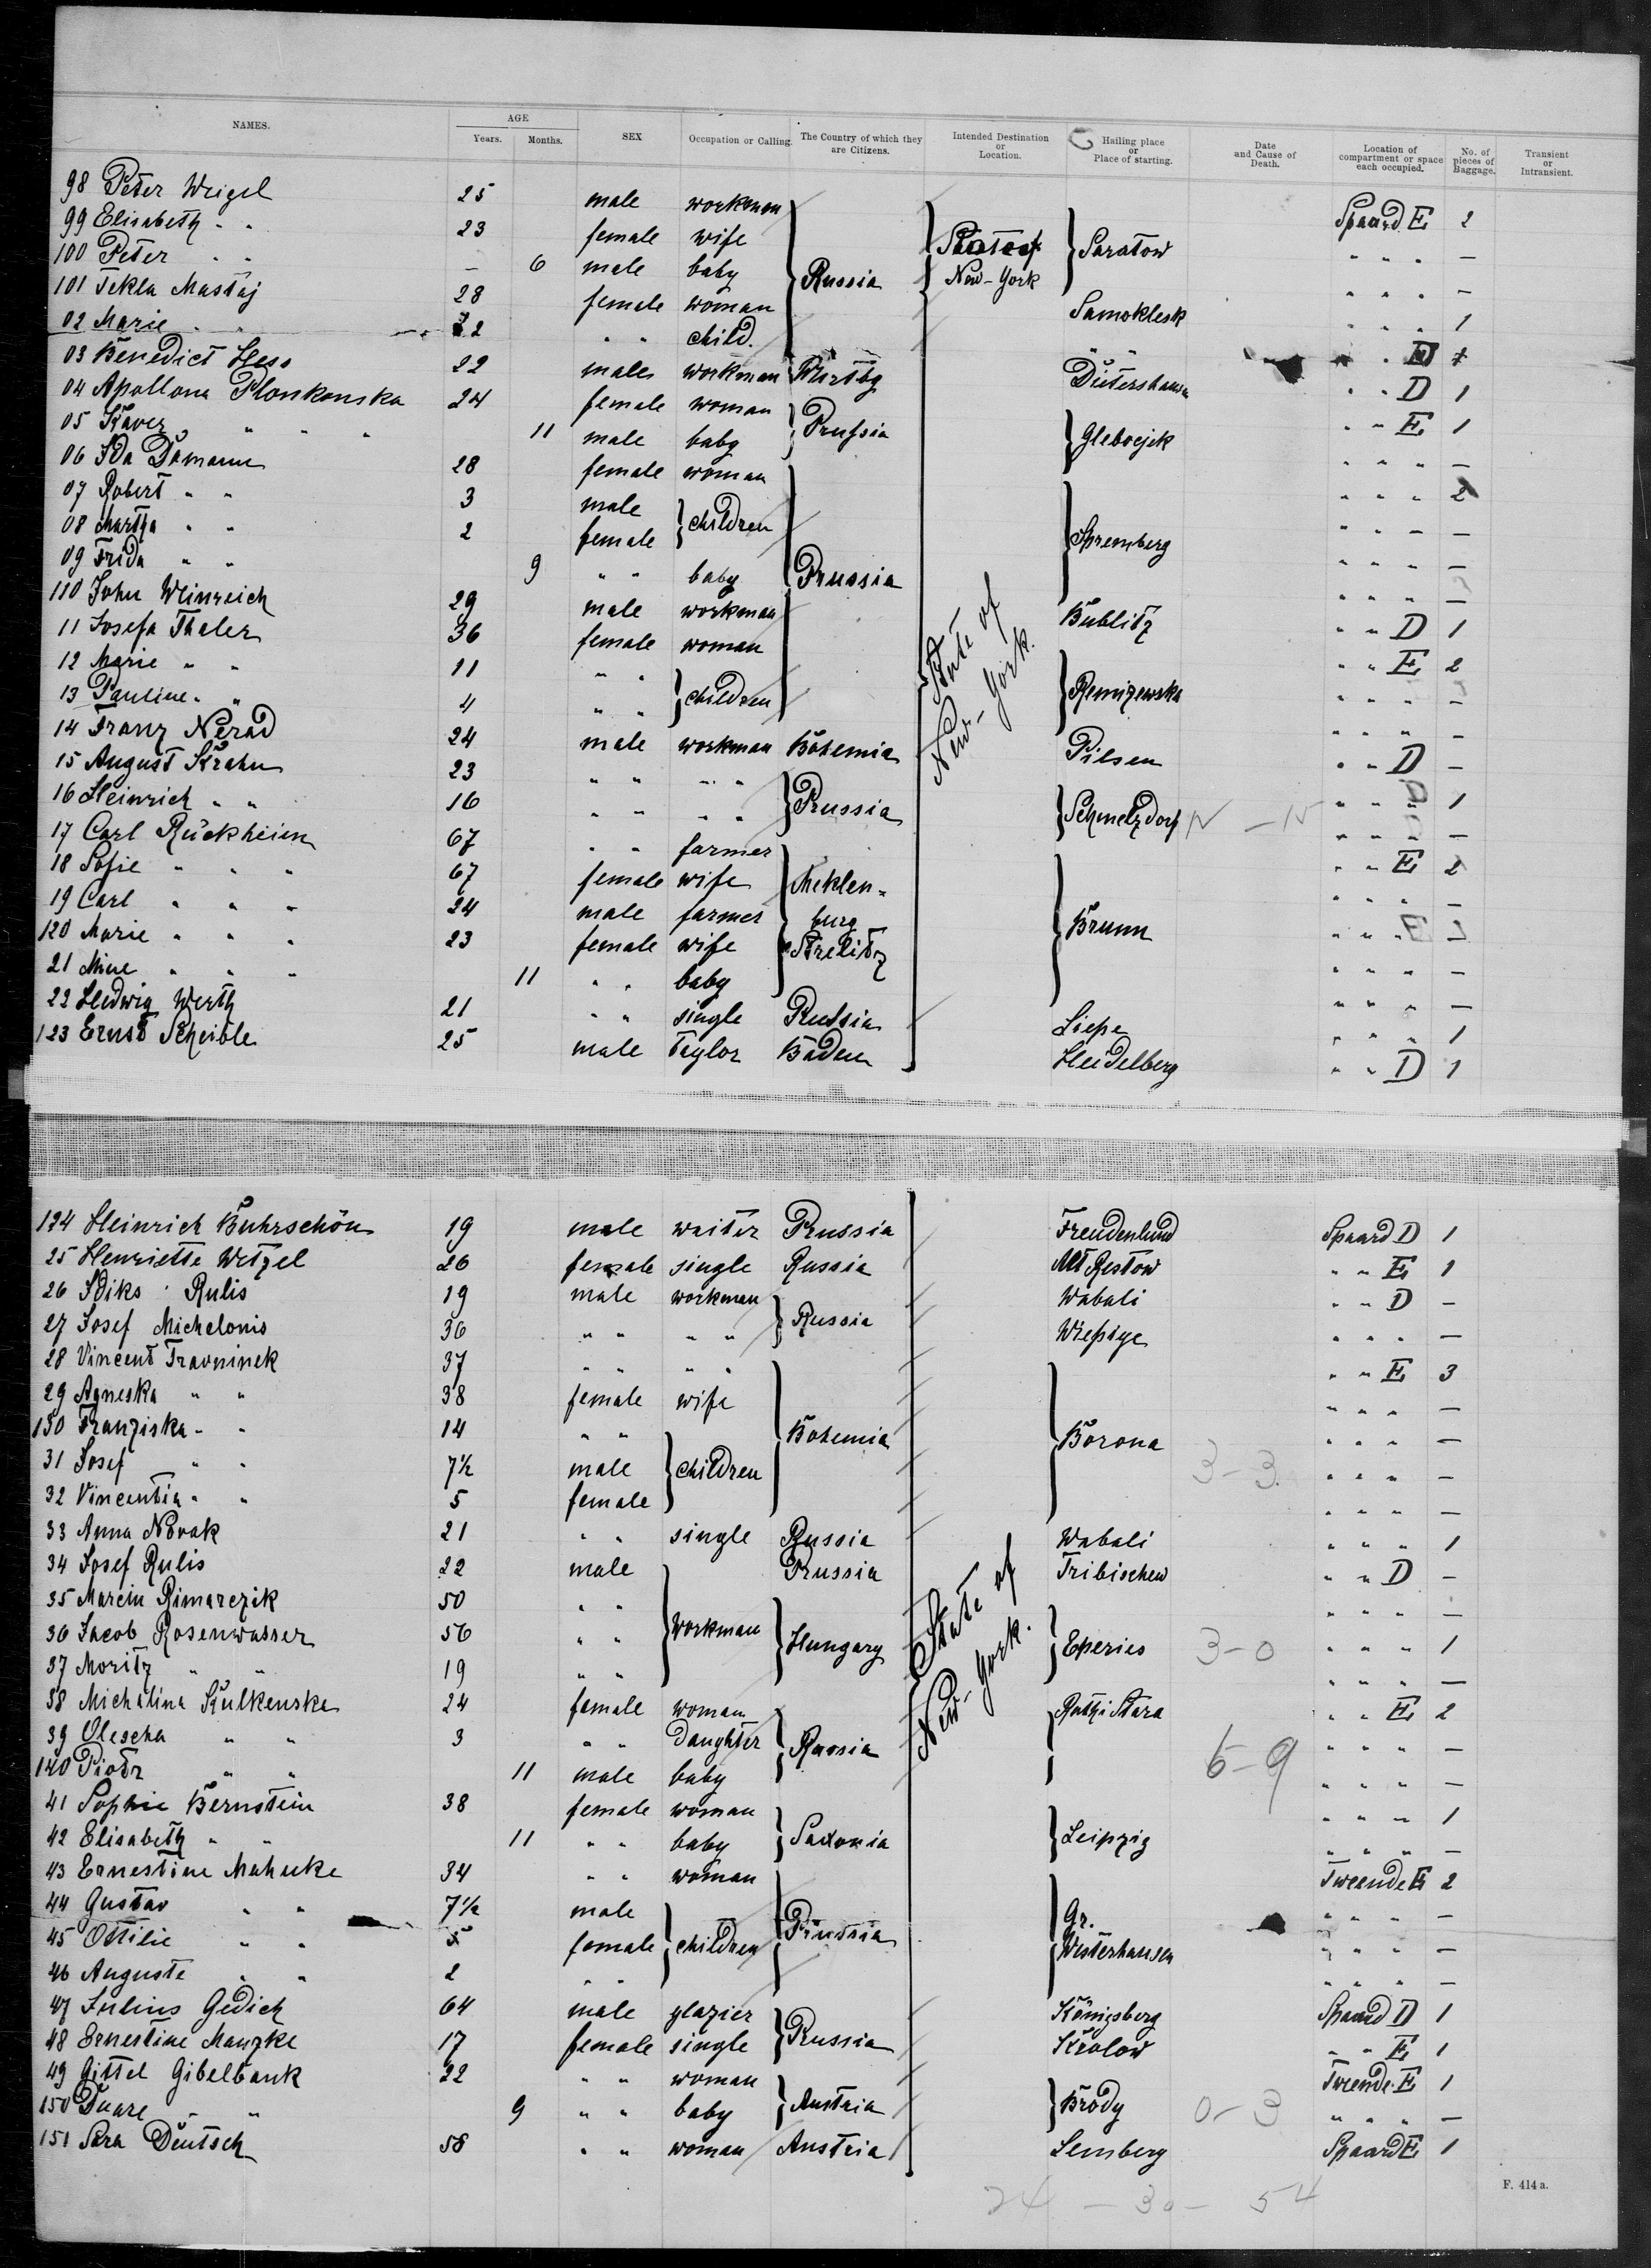 NAMES. AGE Years. Months. SEX Occupation or Calling. The Country of which they are Citizens. Intended Destination or Location. Hailing place or Place of starting. Date and Cause of Death. Location of compartment or space each occupied. No. of pieces of Baggage. Transient or Intransient.
98 Peter Weigel 25 male workman Spaard E 2
99 Elisabeth " " 23 female wife State of Saratow " " " —
100 Peter " " — 6 male baby Russia New-York " " " —
101 Tekla Mastaj 28 female woman Samoklesk " " " 1
02 Marie " " 2 " " child. " " " " E
03 Benedict Hess 22 male workman Wirtbg " " D 1
04 Apollona Plonkonska 24 female woman Prussia " " E 1
05 Xaver " " " 11 male baby " " " —
06 Ida Damann 28 female woman " " " 2
07 Robert " " 3 male children " " " —
08 Martha " " 2 female Spremberg " " " —
09 Frida " " 9 " " baby Prussia " " " —
110 John Weinreich 29 male workman Bublitz " " D 1
11 Josefa Thaler 36 female woman " " E 2
12 Marie " " 11 " " children " " " —
13 Pauline " " 4 " " " " " —
14 Franz Nerad 24 male workman Bohemia State of New-York. Pilsen " " D —
15 August Krahn 23 " " " " Prussia Schmelzdorf " " " 1
16 Heinrich " " 16 " " " " " " " —
17 Carl Rückheim 67 " " farmer " " E 2
18 Sofie " " " 67 female wife Meklen- " " " —
19 Carl " " " 24 male farmer burg Brunn " " " —
120 Marie " " " 23 female wife Strelitz " " " —
21 Mine " " " 11 " " baby " " " —
22 Hedwig Werth 21 " " single Russia Liepe " " " 1
123 Ernst Scheible 25 male Taylor Baden Heidelberg " " D 1
124 Heinrich Buhrschön 19 male waiter Prussia Spaard D 1
25 Henriette Wetzel 26 female single Russia Alt Restow " " E 1
26 Idiks Rulis 19 male workman Russia Wabali " " D —
27 Josef Michelonis 36 " " " " " " " —
28 Vincent Travninek 37 " " " " " " E 3
29 Agneska " " 38 female wife " " " —
130 Franziska " " 14 " " children Bohemia Borona " " " —
31 Josef " " 7½ male 3-3 " " " —
32 Vincentia " " 5 female " " " —
33 Anna Novak 21 " " single Russia Wabali " " " 1
34 Josef Rulis 22 male Prussia Tribischew " " D —
35 Marcin Rimarczik 50 " " Workman Hungary Eperies " " " —
36 Jacob Rosenwasser 56 " " 3-0 " " " 1
37 Moritz " " 19 " " " " " —
38 Michalina Kulkenska 24 female woman State of New-York. " " E 2
39 Olescha " " 3 " " daughter Russia 6-9 " " " —
140 Piotr " " 11 male baby " " " —
41 Sophie Bernstein 38 female woman Saxonia Leipzig " " " 1
42 Elisabeth " " 11 " " baby " " " —
43 Ernestine Mahnke 34 " " woman Tweende E 2
44 Gustav " " 7½ male children Prussia Gr. " " " —
45 Ottilie " " 5 female Westerhausen " " " —
46 Auguste " " 2 " " " " " —
47 Julius Gedich 64 male glazier Russia Königsberg Spaard D 1
48 Ernestine Manzke 17 female single Krolow " " E 1
49 Gittel Gibelbank 22 " " woman Austria Brody Tweende E 1
150 " " 9 " " baby 0-3 " " " —
151 Sara Deutsch 58 " " woman Austria Lemberg Spaard E 1
24 — 30 — 54
F. 414 a.